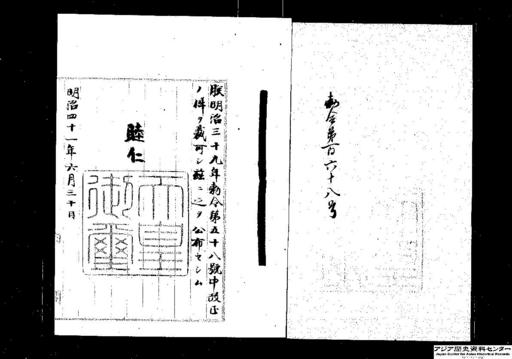 勅令第百六十八号
朕明治三十九年勅令第五十八號中改正
ノ件ヲ裁可シ茲ニ之ヲ公布セシム
睦仁
天皇
御璽
明治四十一年六月三十日
アジア歴史資料センター
Japan Center for Asian Historical Records